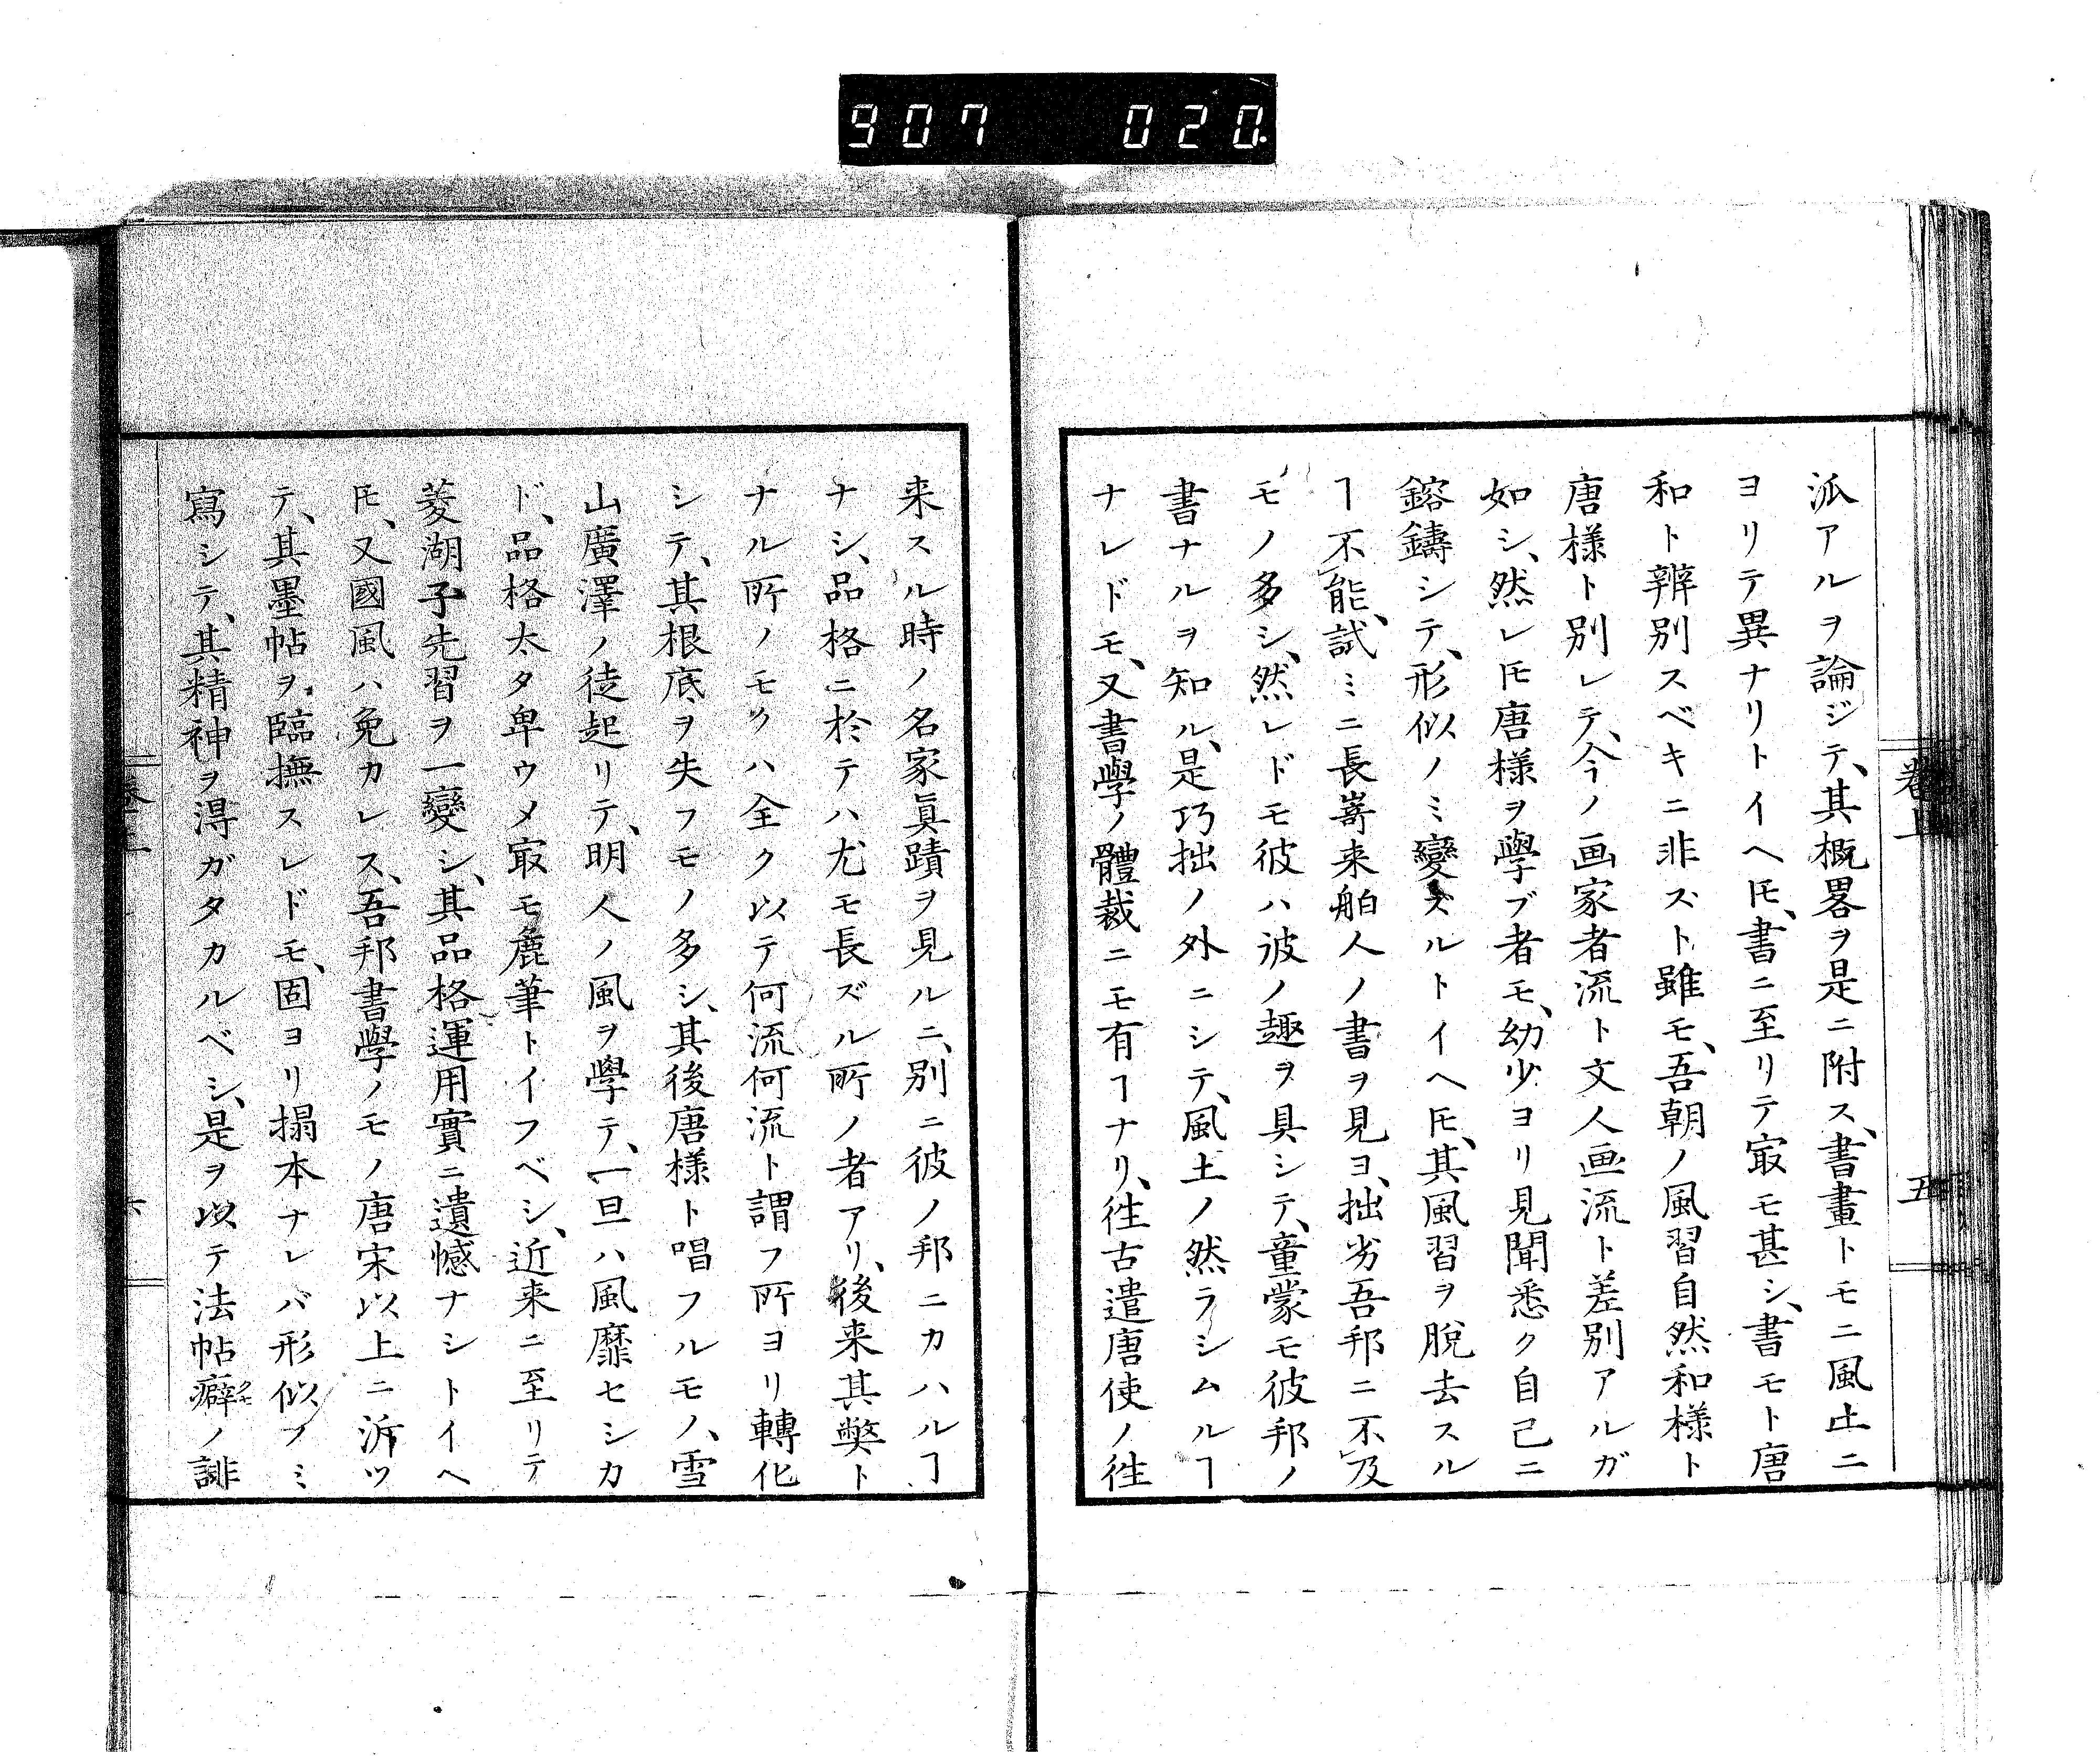 907 020
巻上
五
派アルヲ論ジテ、其概畧ヲ是ニ附ス、書畫トモニ風土ニ
ヨリテ異ナリトイヘ𪜈、書ニ至リテ㝡モ甚シ、書モト唐
和ト辨別スベキニ非ズト雖モ、吾朝ノ風習自然和様ト
唐様ト別レテ、今ノ画家者流ト文人画流ト差別アルガ
如シ、然レ𪜈唐様ヲ學ブ者モ、幼少ヨリ見聞悉ク自己ニ
鎔鑄シテ、形似ノミ變ズルトイヘ𪜈、其風習ヲ脱去スル
ヿ不能、試ミニ長嵜来舶人ノ書ヲ見ヨ、拙劣吾邦ニ不及
モノ多シ、然レドモ彼ハ彼ノ趣ヲ具シテ、童蒙モ彼邦ノ
書ナルヲ知ル、是巧拙ノ外ニシテ、風土ノ然ラシムルヿ
ナレドモ、又書學ノ體裁ニモ有ヿナリ、往古遣唐使ノ往
来スル時ノ名家眞蹟ヲ見ルニ、別ニ彼ノ邦ニカハルヿ
ナシ、品格ニ於テハ尤モ長ズル所ノ者アリ、後来其弊ト
ナル所ノモノハ全ク以テ何流何流ト謂フ所ヨリ轉化
シテ、其根底ヲ失フモノ多シ、其後唐様ト唱フルモノ、雪
山廣澤ノ徒起リテ、明人ノ風ヲ學テ、一旦ハ風靡セシカ
ド、品格太タ卑ウメ㝡モ麁筆トイフベシ、近来ニ至リテ
菱湖子先習ヲ一變シ、其品格運用實ニ遺憾ナシトイヘ
𪜈、又國風ハ免カレス、吾邦書学ノモノ唐宋以上ニ泝ツ
テ、其墨帖ヲ臨撫スレドモ、固ヨリ搨本ナレバ形似ノミ
寫シテ、其精神ヲ得ガタカルベシ、是ヲ以テ法帖癖ノ誹
六